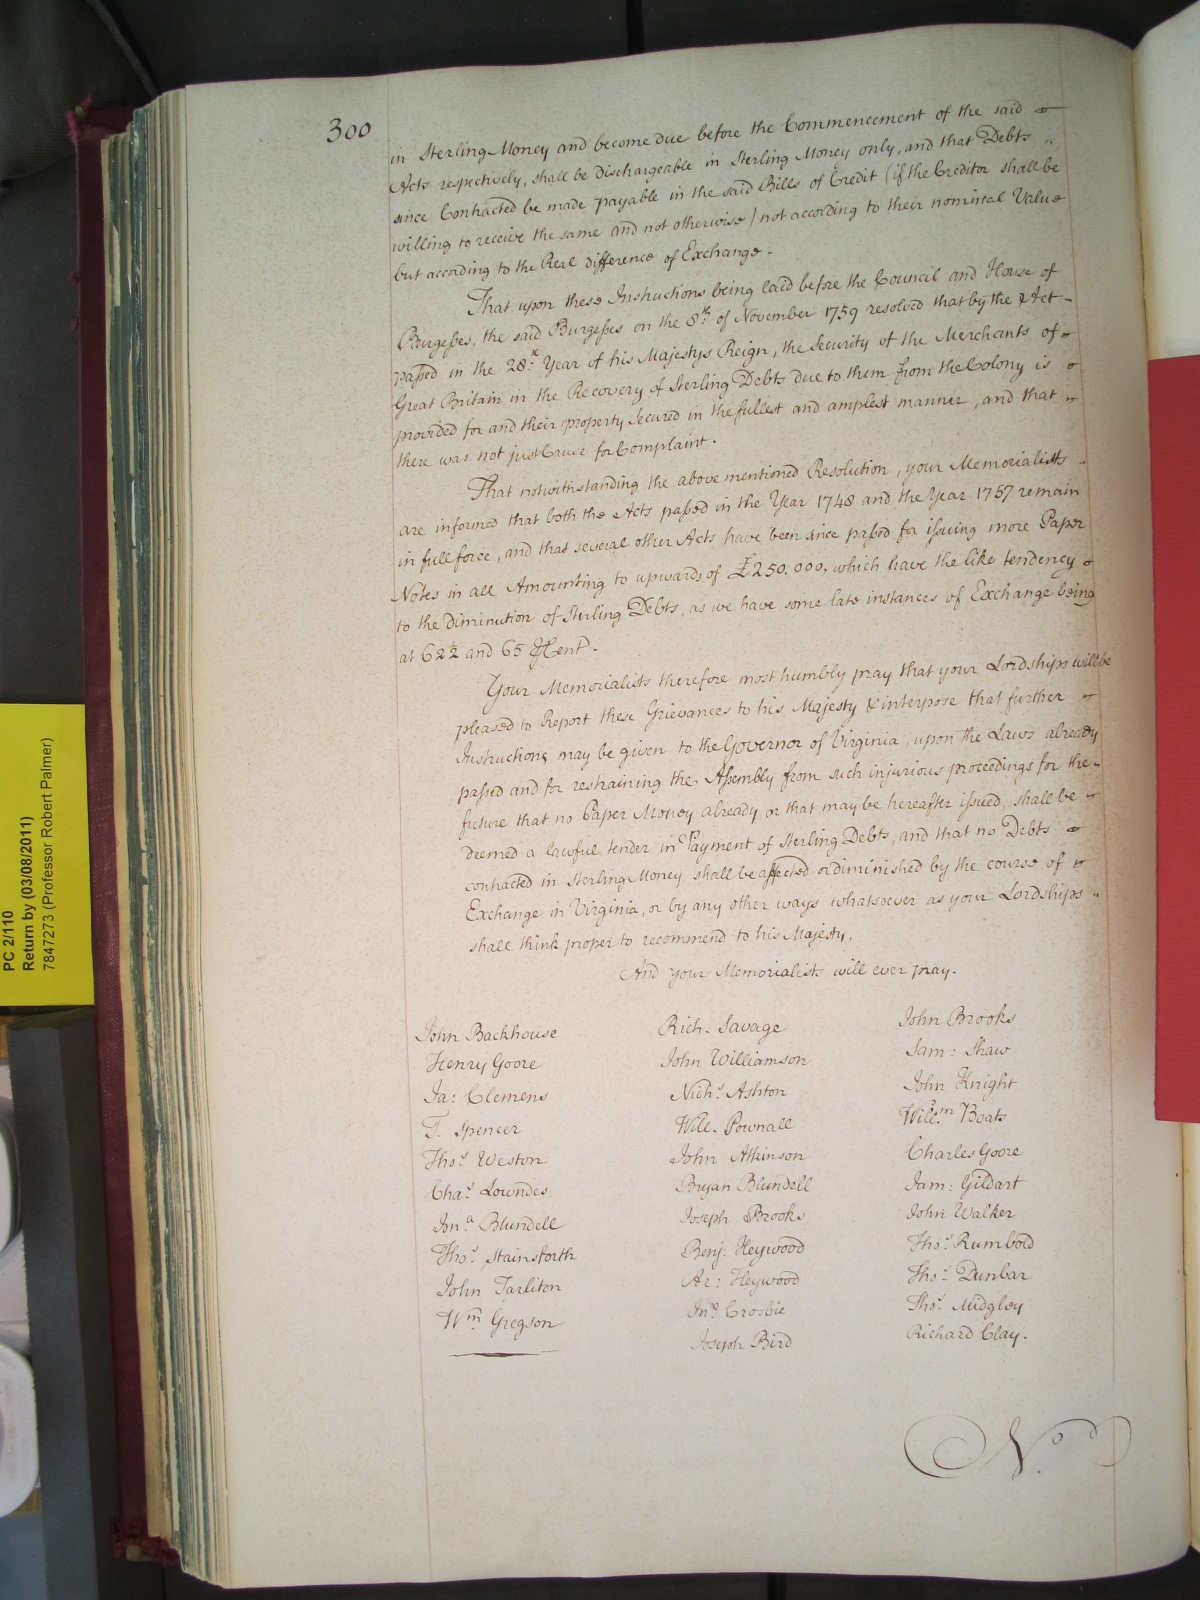 300
in Sterling Money and become due before the Commencement of the said
Acts respectively, shall be dischargeable in Sterling Money only, and that Debts
since Contracted be made payable in the said Bills of Credit (if the Creditor shall be
willing to receive the same and not otherwise) not according to their nominal Value
but according to the Real difference of Exchange.
That upon these Instructions being laid before the Council and House of
Burgesses, the said Burgesses on the 8th of November 1759 resolved that by the Act
passed in the 28th Year of his Majestys Reign, the Security of the Merchants of
Great Britain in the Recovery of Sterling Debts due to them from the Colony is
provided for and their property secured in the fullest and amplest manner, and that
there was not just Cause for Complaint.
That notwithstanding the above mentioned Resolution, your Memorialists
are informed that both the Acts passed in the Year 1748 and the Year 1757 remain
in full force, and that several other Acts have been since passed for issuing more Paper
Notes in all Amounting to upwards of £250.000, which have the like tendency
to the diminution of Sterling Debts, as we have some late instances of Exchange being
at 62½ and 65 ⅌ Cent.
Your Memorialists therefore most humbly pray that your Lordships will be
pleased to Report these Grievances to his Majesty & interpose that further
Instructions may be given to the Governor of Virginia, upon the Laws already
passed and for restraining the Assembly from such injurious proceedings for the
future that no Paper Money already or that may be hereafter issued, shall be
deemed a lawful tender in Payment of Sterling Debts, and that no Debts
contracted in Sterling Money shall be affected or diminished by the course of
Exchange in Virginia, or by any other ways whatsoever as your Lordships
shall think proper to recommend to his Majesty,
And your Memorialists will ever pray.
John Backhouse
Henry Goore
Ja: Clemens
T. Spencer
Thos. Weston
Chas. Lowndes
Jna. Blundell
Thos. Stainsforth
John Tarliton
Wm. Gregson
Rich. Savage
John Williamson
Nichs. Ashton
Will. Pownall
John Atkinson
Bryan Blundell
Joseph Brooks
Benj: Heywood
Ar: Heywood
Jno. Crosbie
Joseph Bird
John Brooks
Sam: Shaw
John Knight
Willm. Boats
Charles Goore
Jam: Gildart
John Walker
Thos. Rumbold
Thos. Dunbar
Thos. Midgley
Richard Clay.
No.
PC 2/110
Return by (03/08/2011)
7847273 (Professor Robert Palmer)